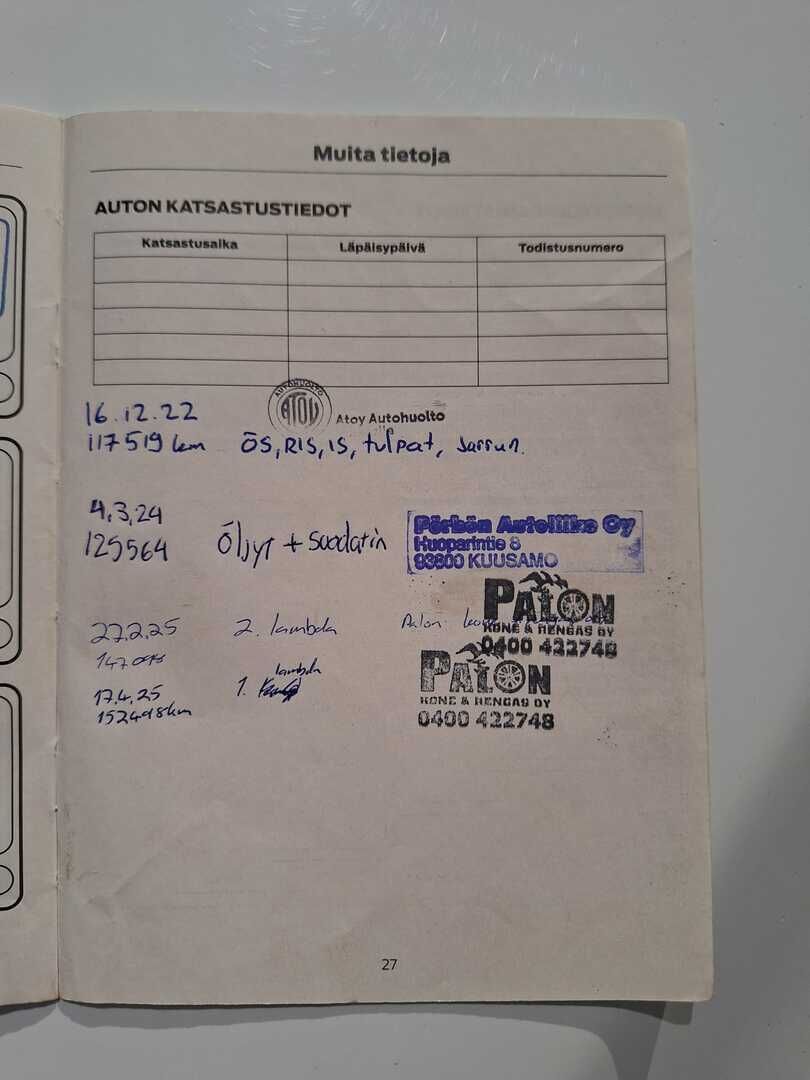 Muita tietoja
AUTON KATSASTUSTIEDOT
Katsastusaika Läpäisypäivä Todistusnumero
AUTOHUOLTO
ATOY Atoy Autohuolto
16.12.22
117519 km ÖS, RIS, IS, tulpat, Jarrun.
4.3.24
125564 Öljyt + suodatin
Pörhön Autoliike Oy
Huoparintie 8
93600 KUUSAMO
27.2.25 2. lambda Palon
PALON
KONE & RENGAS OY
0400 422748
lambda
17.4.25 1.
152498km
PALON
KONE & RENGAS OY
0400 422748
27